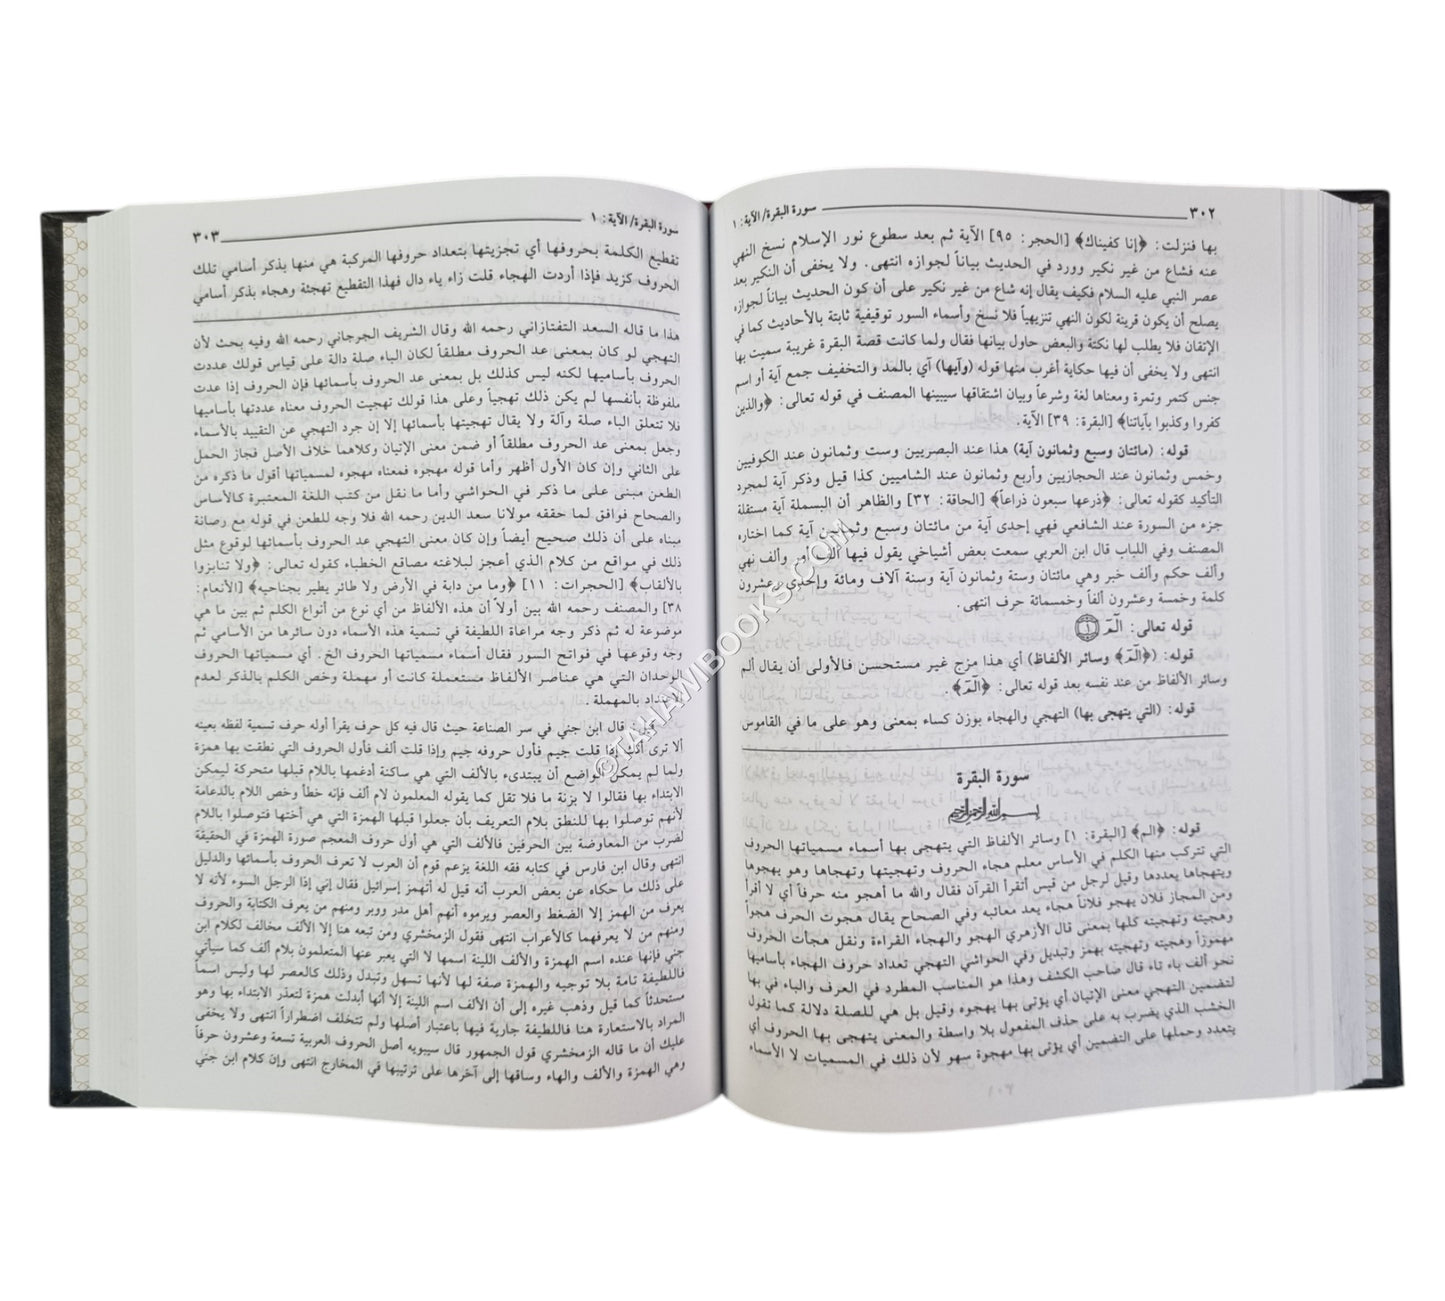 ٣٠٢ سورة البقرة/ الآية: ١
بها فنزلت: ﴿إنا كفيناك﴾ [الحجر: ٩٥] الآية ثم بعد سطوع نور الإسلام نسخ النهي
عنه فشاع من غير نكير وورد في الحديث بياناً لجوازه انتهى. ولا يخفى أن النكير بعد
عصر النبي عليه السلام فكيف يقال إنه شاع من غير نكير على أن كون الحديث بياناً لجوازه
يصلح أن يكون قرينة لكون النهي تنزيهياً فلا نسخ وأسماء السور توقيفية ثابتة بالأحاديث كما في
الإتقان فلا يطلب لها نكتة والبعض حاول بيانها فقال ولما كانت قصة البقرة غريبة سميت بها
انتهى ولا يخفى أن فيها حكاية أغرب منها قوله (وآيها) آي بالمد والتخفيف جمع آية أو اسم
جنس كتمر وتمرة ومعناها لغة وشرعاً وبيان اشتقاقها سيبينها المصنف في قوله تعالى: ﴿والذين
كفروا وكذبوا بآياتنا﴾ [البقرة: ٣٩] الآية.
قوله: (مائتان وسبع وثمانون آية) هذا عند البصريين وست وثمانون عند الكوفيين
وخمس وثمانون عند الحجازيين وأربع وثمانون عند الشاميين كذا قيل وذكر آية لمجرد
التأكيد كقوله تعالى: ﴿ذرعها سبعون ذراعاً﴾ [الحاقة: ٣٢] والظاهر أن البسملة آية مستقلة
جزء من السورة عند الشافعي فهي إحدى آية من مائتان وسبع وثمانين آية كما اختاره
المصنف وفي اللباب قال ابن العربي سمعت بعض أشياخي يقول فيها ألف أمر وألف نهي
وألف حكم وألف خبر وهي مائتان وستة وثمانون آية وستة آلاف ومائة وإحدى وعشرون
كلمة وخمسة وعشرون ألفاً وخمسمائة حرف انتهى.
قوله تعالى: الٓمٓ ١
قوله: (﴿الٓمٓ﴾ وسائر الألفاظ) أي هذا مزج غير مستحسن فالأولى أن يقال ألم
وسائر الألفاظ من عند نفسه بعد قوله تعالى: ﴿الٓمٓ﴾.
قوله: (التي يتهجى بها) التهجي والهجاء بوزن كساء بمعنى وهو على ما في القاموس
سورة البقرة
بسم الله الرحمن الرحيم
قوله: ﴿الم﴾ [البقرة: ١] وسائر الألفاظ التي يتهجى بها أسماء مسمياتها الحروف
التي تتركب منها الكلم في الأساس معلم هجاء الحروف وتهجيتها وتهجاها وهو يهجوها
ويتهجاها يعددها وقيل لرجل من قيس أتقرأ القرآن فقال والله ما أهجو منه حرفاً أي لا أقرأ
ومن المجاز فلان يهجو فلاناً هجاء يعد معائبه وفي الصحاح يقال هجوت الحرف هجواً
وهجيته وتهجيته كلها بمعنى قال الأزهري الهجو والهجاء القراءة ونقل هجأت الحروف
مهموزاً وهجيته وتهجيته بهمز وتبديل وفي الحواشي التهجي تعداد حروف الهجاء بأساميها
نحو ألف باء تاء قال صاحب الكشف وهذا هو المناسب المطرد في العرف والباء في بها
لتضمين التهجي معنى الإتيان أي يؤتى بها يهجوه وقيل بل هي للصلة دلالة كما تقول
الخشب الذي يضرب به على حذف المفعول بلا واسطة والمعنى يتهجى بها الحروف أي
يتعدد وحملها على التضمين أي يؤتى بها مهجوة سهو لأن ذلك في المسميات لا الأسماء
سورة البقرة/ الآية: ١ ٣٠٣
تقطيع الكلمة بحروفها أي تجزيتها بتعداد حروفها المركبة هي منها بذكر أسامي تلك
الحروف كزيد فإذا أردت الهجاء قلت زاء ياء دال فهذا التقطيع تهجئة وهجاء بذكر أسامي
هذا ما قاله السعد التفتازاني رحمه الله وقال الشريف الجرجاني رحمه الله وفيه بحث لأن
التهجي لو كان بمعنى عد الحروف مطلقاً لكان الباء صلة دالة على قياس قولك عددت
الحروف بأساميها لكنه ليس كذلك بل بمعنى عد الحروف بأسمائها فإن الحروف إذا عدت
ملفوظة بأنفسها لم يكن ذلك تهجياً وعلى هذا قولك تهجيت الحروف معناه عددتها بأساميها
فلا تتعلق الباء صلة وآلة ولا يقال تهجيتها بأسمائها إلا إن جرد التهجي عن التقييد بالأسماء
وجعل بمعنى عد الحروف مطلقاً أو ضمن معنى الإتيان وكلاهما خلاف الأصل فجاز الحمل
على الثاني وإن كان الأول أظهر وأما قوله مهجوه فمعناه مهجوه لمسمياتها أقول ما ذكره من
الطعن مبنى على ما ذكر في الحواشي وأما ما نقل من كتب اللغة المعتبرة كالأساس
والصحاح فوافق لما حققه مولانا سعد الدين رحمه الله فلا وجه للطعن في قوله مع رصانة
مبناه على أن ذلك صحيح أيضاً وإن كان معنى التهجي عد الحروف بأسمائها لوقوع مثل
ذلك في مواقع من كلام الذي أعجز لبلاغته مصاقع الخطباء كقوله تعالى: ﴿ولا تنابزوا
بالألقاب﴾ [الحجرات: ١١] ﴿وما من دابة في الأرض ولا طائر يطير بجناحيه﴾ [الأنعام:
٣٨] والمصنف رحمه الله بين أولاً أن هذه الألفاظ من أي نوع من أنواع الكلم ثم بين ما هي
موضوعة له ثم ذكر وجه مراعاة اللطيفة في تسمية هذه الأسماء دون سائرها من الأسامي ثم
وجه وقوعها في فواتح السور فقال أسماء مسمياتها الحروف الخ. أي مسمياتها الحروف
الوحدان التي هي عناصر الألفاظ مستعملة كانت أو مهملة وخص الكلم بالذكر لعدم
الاعتداد بالمهملة.
قيل: قال ابن جني في سر الصناعة حيث قال فيه كل حرف يقرأ أوله حرف تسمية لفظه بعينه
ألا ترى أنك إذا قلت جيم فأول حروفه جيم وإذا قلت ألف فأول الحروف التي نطقت بها همزة
ولما لم يمكن الواضع أن يبتدىء بالألف التي هي ساكنة أدغمها باللام قبلها متحركة ليمكن
الابتداء بها فقالوا لا بزنة ما فلا تقل كما يقوله المعلمون لام ألف فإنه خطأ وخص اللام بالدعامة
لأنهم توصلوا بها للنطق بلام التعريف بأن جعلوا قبلها الهمزة التي هي أختها فتوصلوا باللام
لضرب من المعاوضة بين الحرفين فالألف التي هي أول حروف المعجم صورة الهمزة في الحقيقة
انتهى وقال ابن فارس في كتابه فقه اللغة يزعم قوم أن العرب لا تعرف الحروف بأسمائها والدليل
على ذلك ما حكاه عن بعض العرب أنه قيل له أتهمز إسرائيل فقال إني إذا الرجل السوء لأنه لا
يعرف من الهمز إلا الضغط والعصر ويرموه أنهم أهل مدر ووبر ومنهم من يعرف الكتابة والحروف
ومنهم من لا يعرفهما كالأعراب انتهى فقول الزمخشري ومن تبعه هنا إلا الألف مخالف لكلام ابن
جني فإنها عنده اسم الهمزة والألف اللينة اسمها لا التي يعبر عنها المتعلمون بلام ألف كما سيأتي
فاللطيفة تامة بلا توجيه والهمزة صفة لها لأنها تسهل وتبدل وذلك كالعصر لها وليس اسماً
مستحدثاً كما قيل وذهب غيره إلى أن الألف اسم اللينة إلا أنها أبدلت همزة لتعذر الابتداء بها وهو
المراد بالاستعارة هنا فاللطيفة جارية فيها باعتبار أصلها ولم تتخلف اضطراراً انتهى ولا يخفى
عليك أن ما قاله الزمخشري قول الجمهور قال سيبويه أصل الحروف العربية تسعة وعشرون حرفاً
وهي الهمزة والألف والهاء وساقها إلى آخرها على ترتيبها في المخارج انتهى وإن كلام ابن جني
©TAHAWIBOOKS.COM